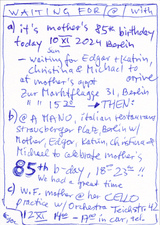 WAITING FOR @ with
a) it's mother's 85th birthday
today 10 XI 2024 Berlin
Sun
- waiting for Edgar + Katrin,
Christina & Michael to
arrive
at mother's appt
Zur Marktflage 31, Berlin
" " 15 → THEN:
b) @ A MANO, italian restaurant
Strausberger Platz, Berlin w/
Mother, Edgar, Katrin, Christina &
Michael to celebrate mother's
85th b-day, 18 - 23 !!
We had a great time
c) W.F. mother @ her CELLO
practice w/ Orchestra
12 XI 14 - 17 in car, tel.